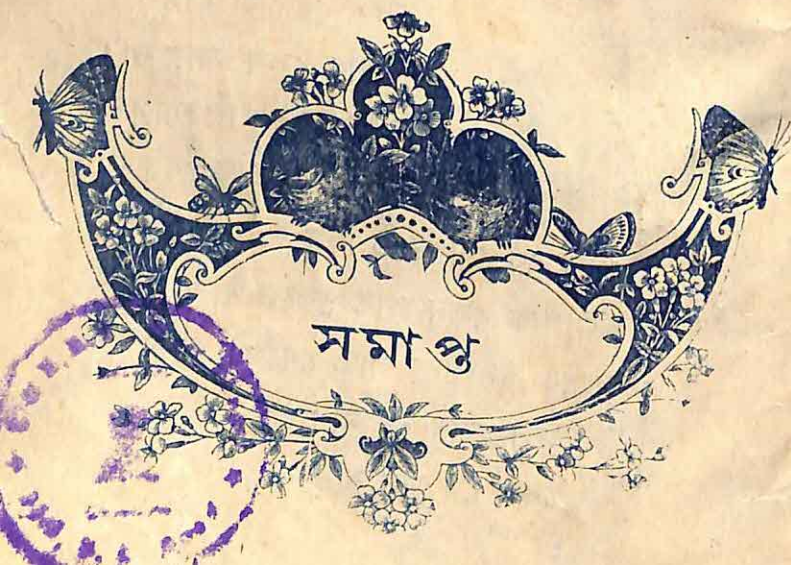 সমাপ্ত